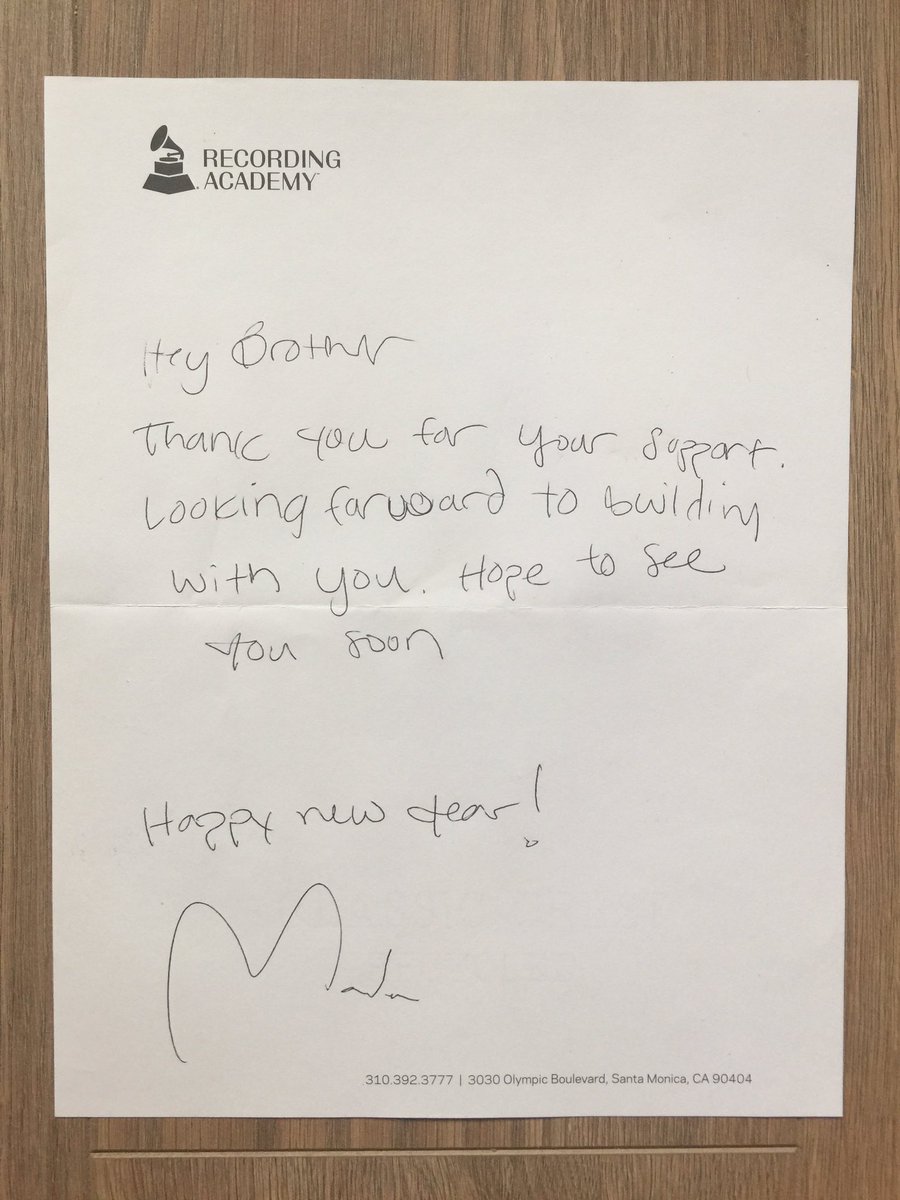 RECORDING
ACADEMY
Hey Brother
Thank you for your support.
Looking forward to building
with you. Hope to see
you soon
Happy new year!
310.392.3777 | 3030 Olympic Boulevard, Santa Monica, CA 90404